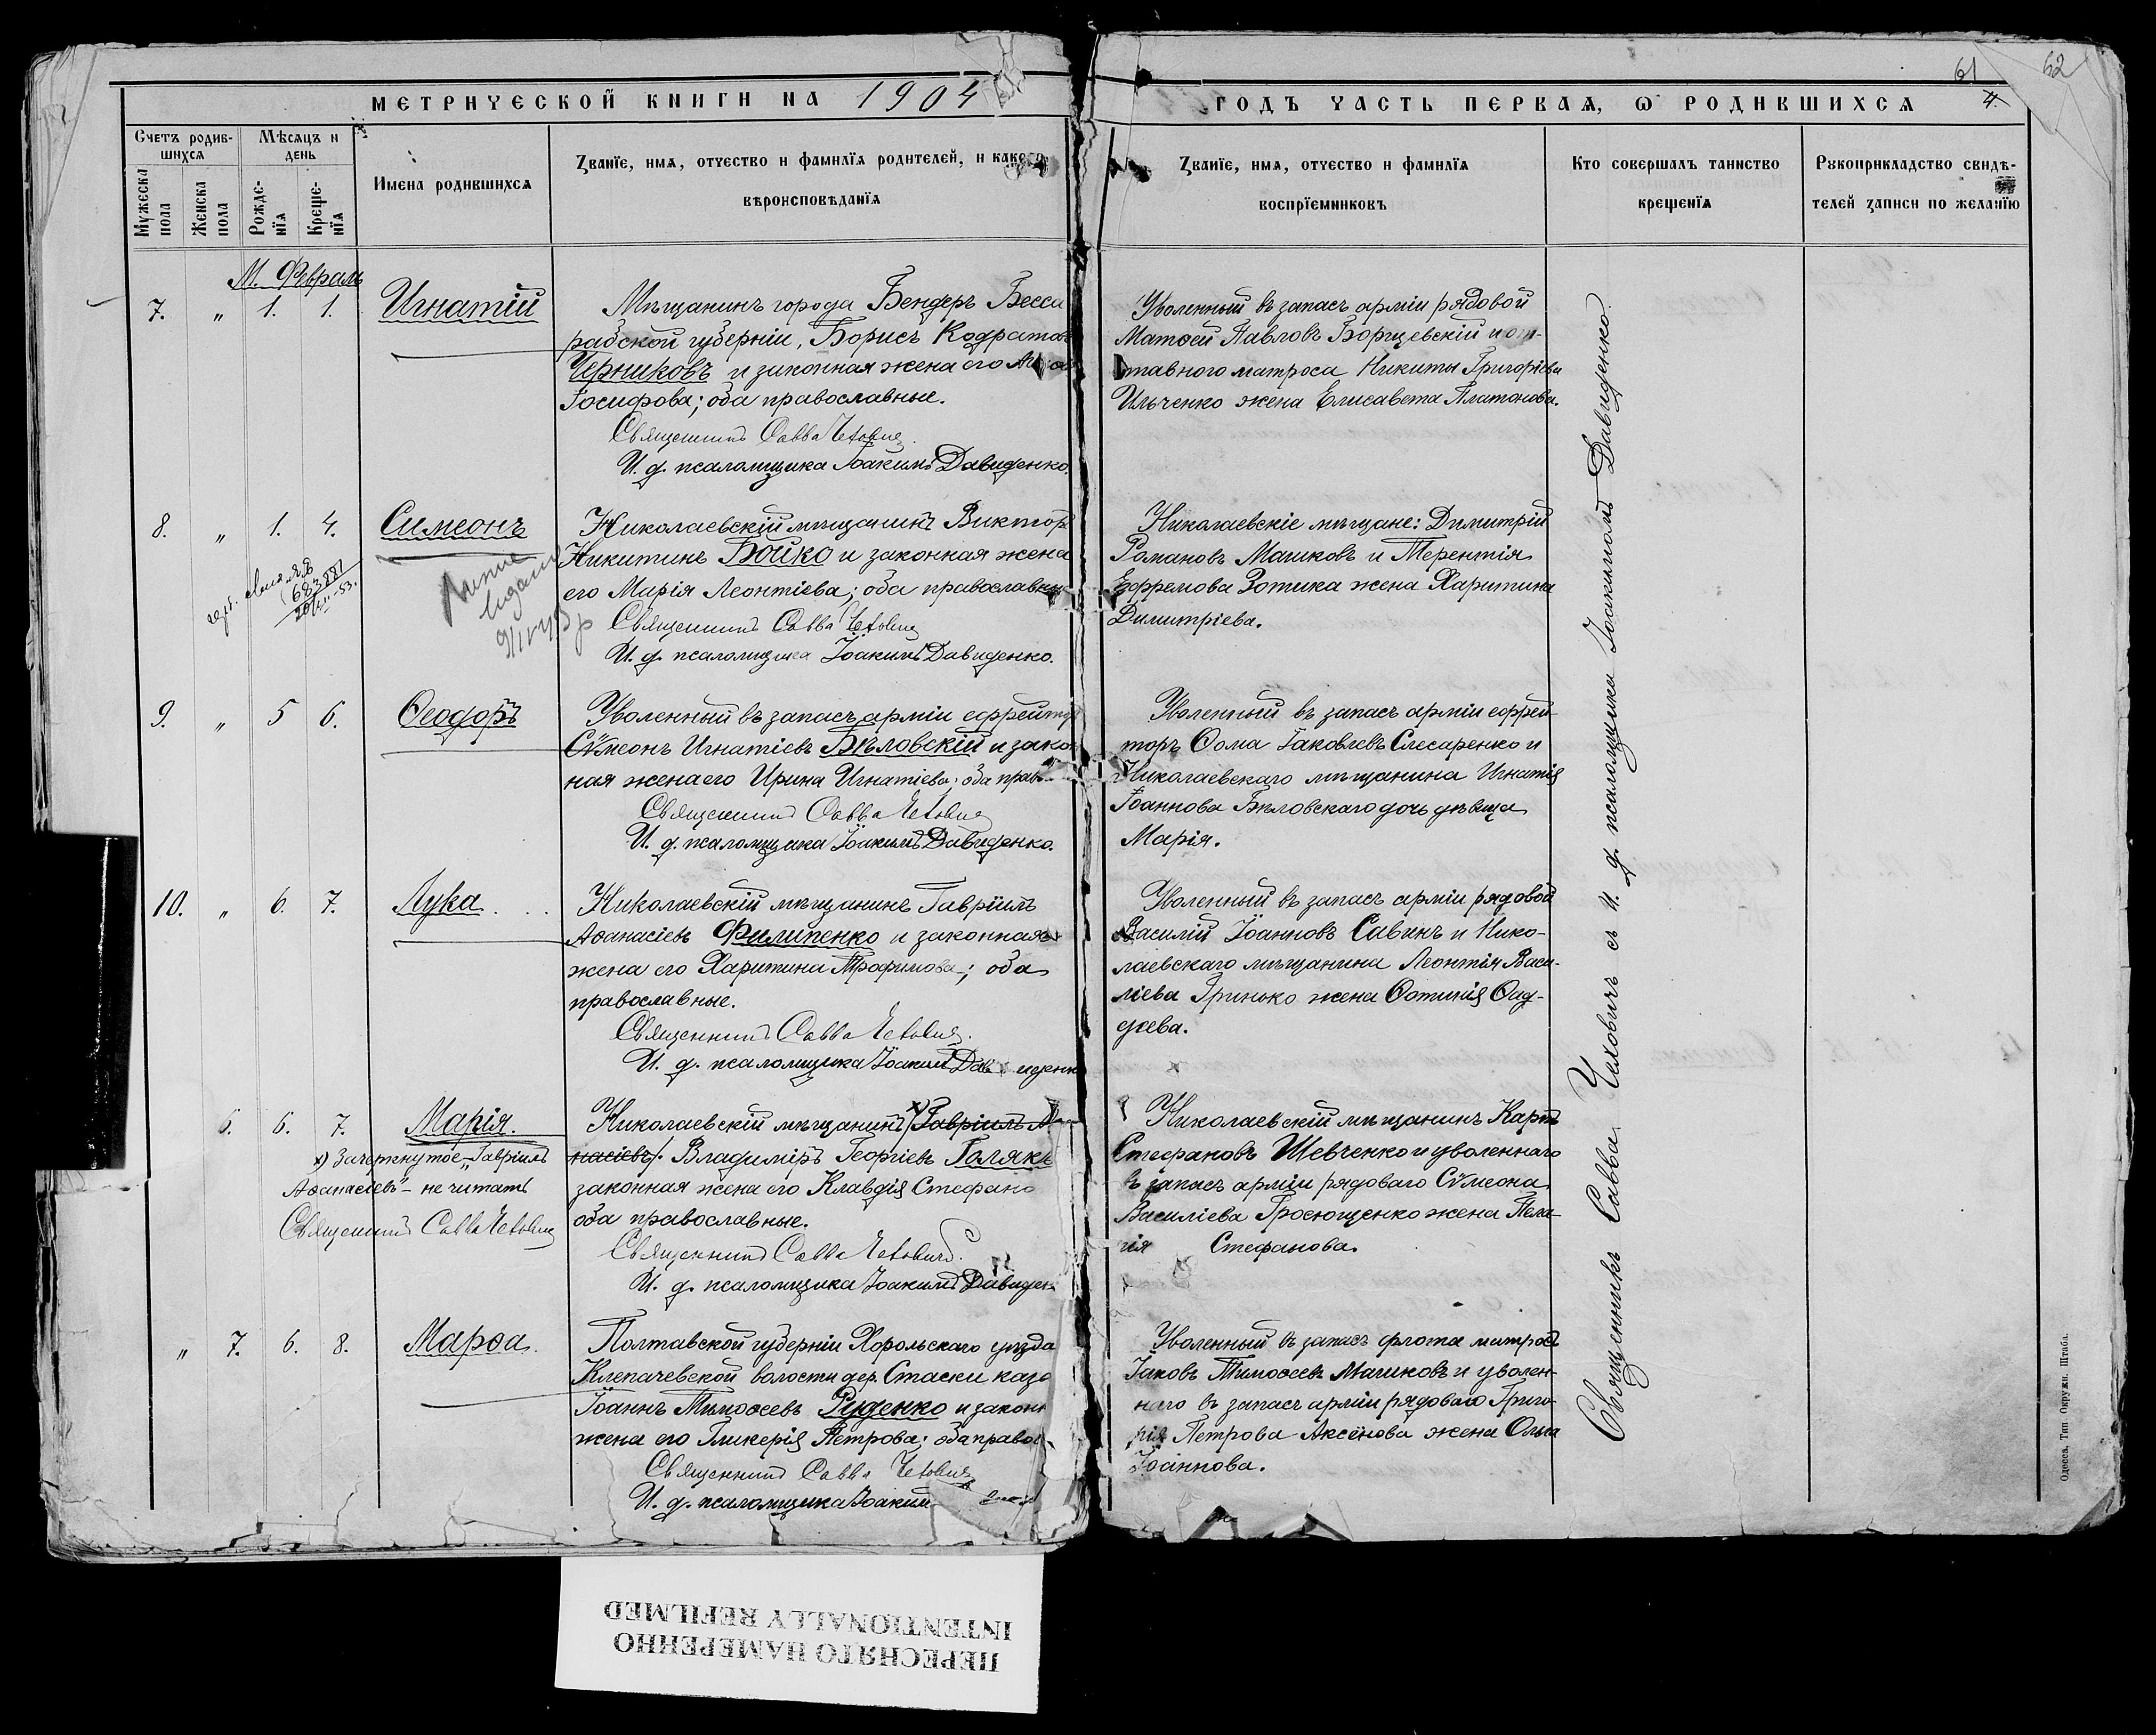 61
62
МЕТРИЧЕСКОЙ КНИГИ НА 1904
ГОДЪ ЧАСТЬ ПЕРВАЯ, Ѡ РОДИВШИХСЯ
4.
Счетъ родив-
шихся
Мѣсяцъ и
день
Мужеска
пола
Женска
пола
Рожде-
нїя
Креще-
нїя
Имена родившихся
Званїе, имя, отчество и фамилїя родителей, и какого
вѣроисповѣданїя
Званїе, имя, отчество и фамилїя
воспрїемниковъ
Кто совершалъ таинство
крещенїя
Рукоприкладство свидѣ-
телей записи по желанїю
М. Февраль
7. „ 1. 1. Игнатій
Мѣщанинъ города Бендеръ Бесса
рабской губерніи, Борисъ Кодратов
Черниковъ и законная жена его
Іосифова; оба православные.
Священникъ Савва Чехович
И. д. псаломщика Іоакимъ Давиденко.
Уволенный въ запасъ арміи рядовой
Матѳей Павловъ Борщевскій и от-
тавного матроса Никиты Григоріева
Ильченко жена Елисавета Платонова.
8. „ 1. 4. Симеонъ
682881
53.
Николаевскій мѣщанинъ Викторъ
Никитинъ Бойко и законная жена
его Марія Леонтіева; оба православны
Священникъ Савва Чехович
И. д. псаломщика Іоакимъ Давиденко.
Николаевскіе мѣщане: Димитрій
Романовъ Машковъ и Терентія
Ефремова Зотика жена Харитина
Димитріева.
9. „ 5 6. Ѳеодоръ
Уволенный въ запасъ арміи ефрейтор
Сѵмеонъ Игнатіевъ Бѣловскій и закон
ная жена его Ирина Игнатіева; оба прав
Священникъ Савва Чехович
И. д. псаломщика Іоакимъ Давиденко.
Уволенный въ запасъ арміи ефрей-
торъ Ѳома Іаковлевъ Слесаренко и
Николаевскаго мѣщанина Игнатія
Іоаннова Бѣловскаго дочь дѣвица
Марія.
10. „ 6. 7. Лука
Николаевскій мѣщанинъ Гавріилъ
Аѳанасіевъ Филипенко и законная
жена его Харитина Трофимова; оба
православные.
Священникъ Савва Чехович.
И. д. псаломщика Іоакимъ Давиденк
Уволенный въ запасъ арміи рядовой
Василій Іоанновъ Савинъ и Нико-
лаевскаго мѣщанина Леонтія Васи-
ліева Гринько жена Фотинія Ѳад-
деева.
6. 6. 7. Марія.
х) Зачеркнутое „Гавріилъ
Аѳанасіевъ“ - не читать
Священникъ Савва Чехович
Николаевскій мѣщанинъ х) Гавріилъ А
насіевъ/. Владиміръ Георгіевъ Голякъ
законная жена его Клавдія Стефано
оба православные.
Священникъ Савва Чеховичъ.
И. д. псаломщика Іоакимъ Давиден
Николаевскій мѣщанинъ Карпъ
Стефановъ Шевченко и уволеннаго
въ запасъ арміи рядоваго Сѵмеона
Василіева жена Пела-
гія Стефанова.
„ 7. 6. 8. Марѳа.
Полтавской губерніи Хорольскаго уѣзда
Клепачевской волости дер. Стаски каза
Іоаннъ Тимоѳеевъ Руденко и законн
жена его Гликерія Петрова; оба правос
Священникъ Савва Чехович
И. д. псаломщика Іоаким
Уволенный въ запасъ флота матросъ
Іаковъ Тимоѳеевъ Машковъ и уволен-
наго въ запасъ арміи рядоваго Григо-
рія Петрова Аксёнова жена Ольга
Іоаннова.
Священникъ Савва Чеховичъ съ и. д. псаломщика Іоакимомъ Давиденко.
Одесса, Тип. Окружн. Штаба.
ПЕРЕСНЯТО НАМЕРЕННО
INTENTIONALLY REFILMED